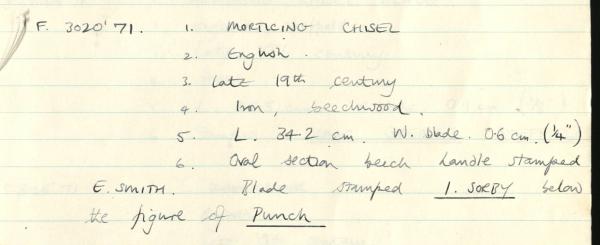 F. 3020'71. 1. MORTICING CHISEL
2. English.
3. Late 19th century
4. Iron, beechwood.
5. L. 34.2 cm. W. blade. 0.6 cm. (1/4")
6. Oval section beech handle stamped
E. SMITH. Blade stamped I. SORBY below
the figure of Punch